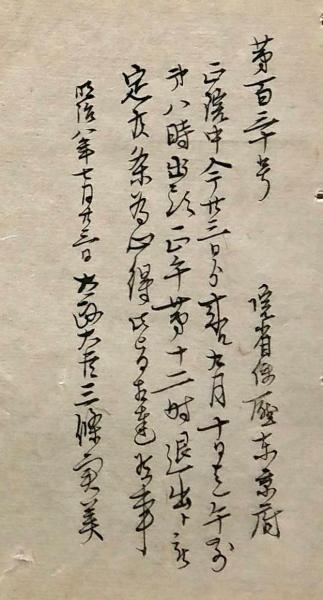 第百三十号
院省使庁東京府
正院中今廿三日ヨリ来ル九月十日迄午前
第八時出頭正午第十二時退出ト被
定候条為心得此旨相達候事
明治八年七月廿三日 太政大臣三條実美